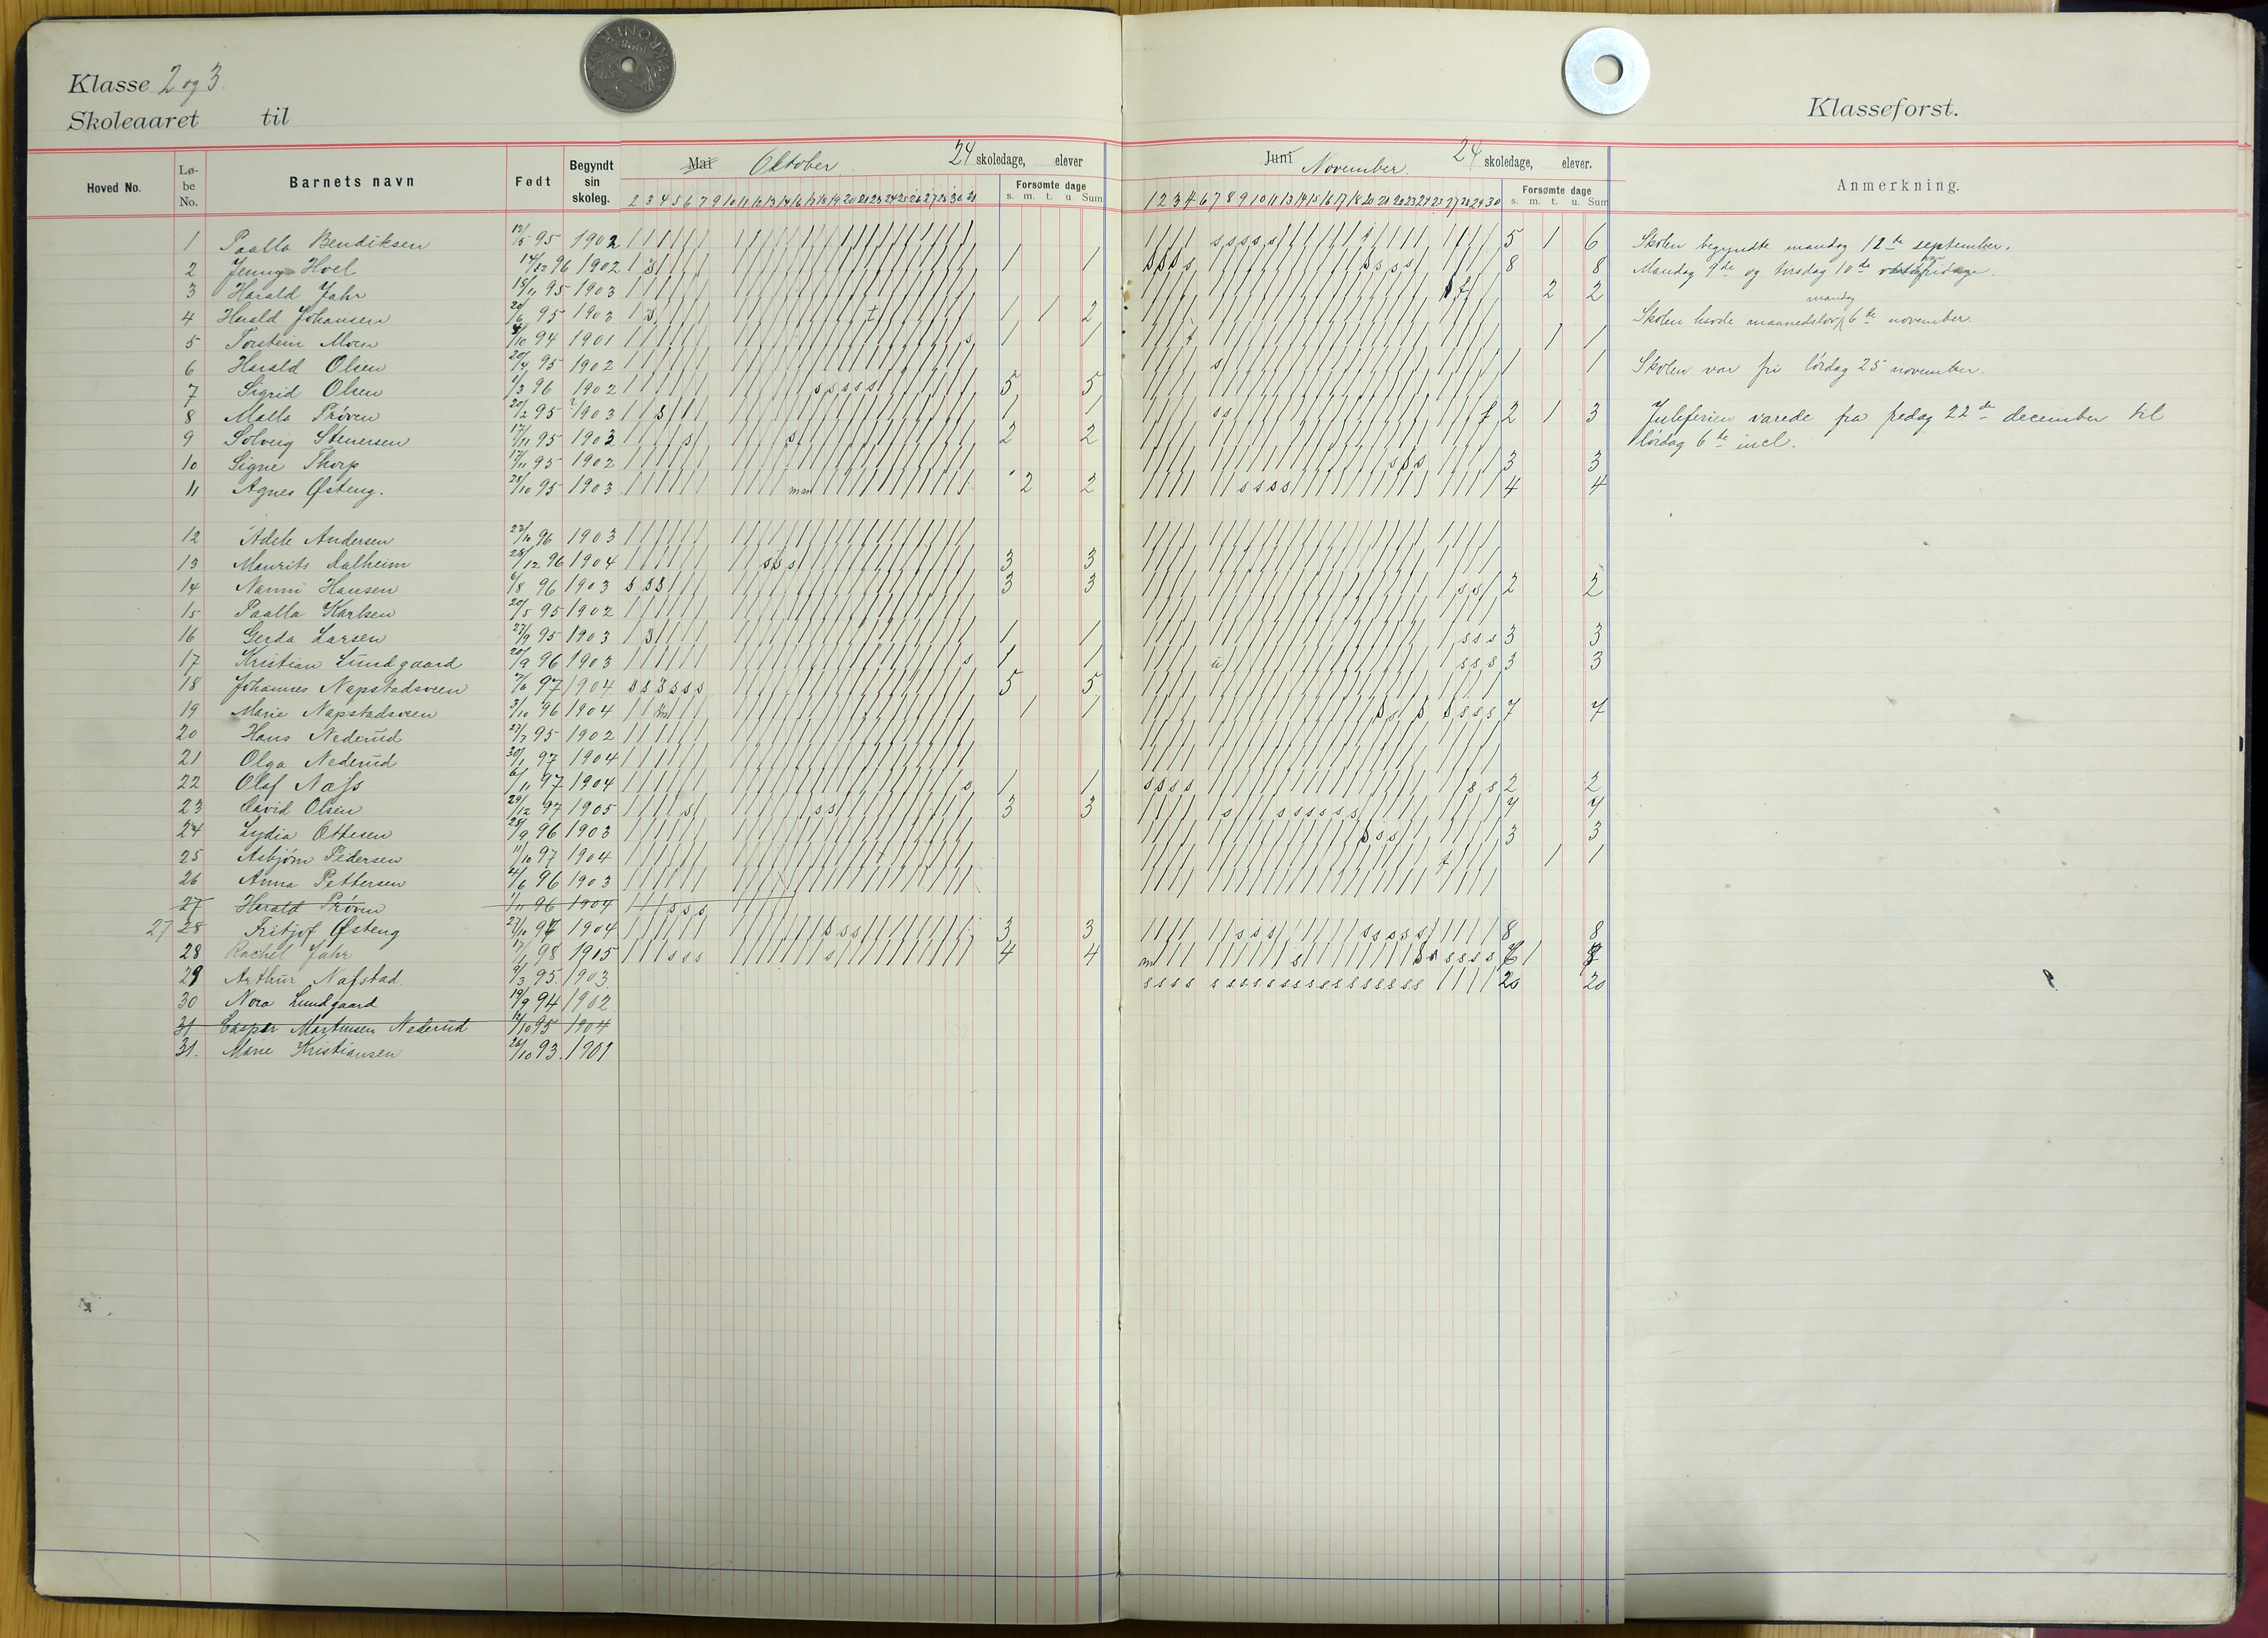 KRONER
Klasse 2 og 3.
Skoleaaret til
Klasseforst.
Hoved No.
Lø-
be
No.
Barnets navn
Født
Begyndt
sin
skoleg.
Mai Oktober 24 skoledage, elever
2 3 4 5 6 7 9 10 11 12 13 14 16 17 18 19 20 21 23 24 25 26 27 28 30 31
Forsømte dage
s. m. t. u Sum
Juni November. 24 skoledage, elever.
1 2 3 4 6 7 8 9 10 11 13 14 15 16 17 18 20 21 22 23 24 25 27 28 29 30
Forsømte dage
s. m. t. u Sum
Anmerkning.
1 Paalla Bendiksen 13/5 95 1902 5 1 6
2 Jenny Hoel 14/12 96 1902 1 1 8 8
3 Harald Jahr 18/11 95 1903 2 2
4 Harald Johansen 20/6 95 1903 1 1 2
5 Torstein Moen 4/10 94 1901 1 1 1 1
6 Harald Olsen 20/4 95 1902 1 1
7 Sigrid Olsen 1/3 96 1902 5 5
8 Malla Prøven 20/12 95 1903 1 1 2 1 3
9 Solveig Stenersen 17/11 95 1903 2 2
10 Signe Thorp 17/11 95 1902 3 3
11 Agnes Østeng. 28/10 95 1903 2 2 4 4
12 Adele Andersen 23/10 96 1903
13 Maurits Dalheim 28/12 96 1904 3 3
14 Nanni Hansen 4/8 96 1903 3 3 2 2
15 Paalla Karlsen 20/5 95 1902
16 Gerda Larsen 27/9 95 1903 1 1 3 3
17 Kristian Lundgaard 20/9 96 1903 1 1 3 3
18 Johannes Napstadsveen 7/6 97 1904 5 5
19 Marie Napstadsveen 3/10 96 1904 1 1 7 7
20 Hans Nederud 21/7 95 1902
21 Olga Nederud 30/1 97 1904
22 Olaf Næss 6/11 97 1904 1 1 2 2
23 David Olsen 29/12 97 1905 3 3 7 7
24 Lydia Ottesen 28/9 96 1903 3 3
25 Asbjørn Pedersen 11/10 97 1904 1 1
26 Anna Pettersen 24/6 96 1903
27 Harald Prøven 1/11 96 1904
27 28 Fritjof Østeng 27/10 97 1904 3 3 8 8
28 Rachel Jahr 17/1 98 1905 4 4 1
29 Arthur Nafstad. 9/3 95. 1903. 20 20
30 Nora Lundgaard 19/9 94 1902.
31 Casper Martinsen Nederud 12/10 95 1904
31. Marie Kristiansen 26/10 93. 1901
Skolen begyndte mandag 18de september.
Mandag 9de og tirsdag 10de
mandag
Skolen havde maanedslov 6te november.
Skolen var fri lørdag 25 november.
Juleferien varede fra fredag 22de december til
lørdag 6te incl.